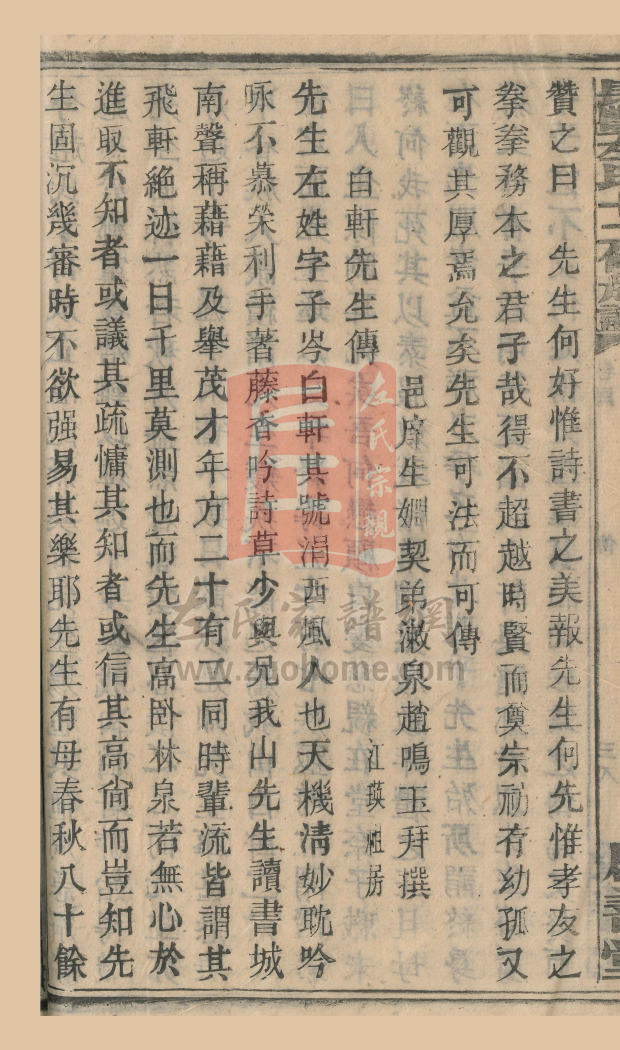 贊之曰 先生何好惟詩書之美報先生何先惟孝友之
拳拳務本之君子哉得不超越時賢而奠宗祊有幼孤又
可觀其厚焉允矣先生可法而可傳
邑庠生姻契弟漱泉趙鳴玉拜撰
白軒先生傳 江蓂祖房
先生左姓字子岑白軒其號涓西楓人也天機清妙耽吟
咏不慕榮利手著藤香吟詩草少與兄我山先生讀書城
南聲稱藉藉及舉茂才年方二十有二同時輩流皆謂其
飛軒絶迹一日千里莫測也而先生高卧林泉若無心於
進取不知者或議其疏慵其知者或信其高尙而豈知先
生固沉幾審時不欲强易其樂耶先生有母春秋八十餘
左氏宗親
左氏家譜网
www.zuohome.com